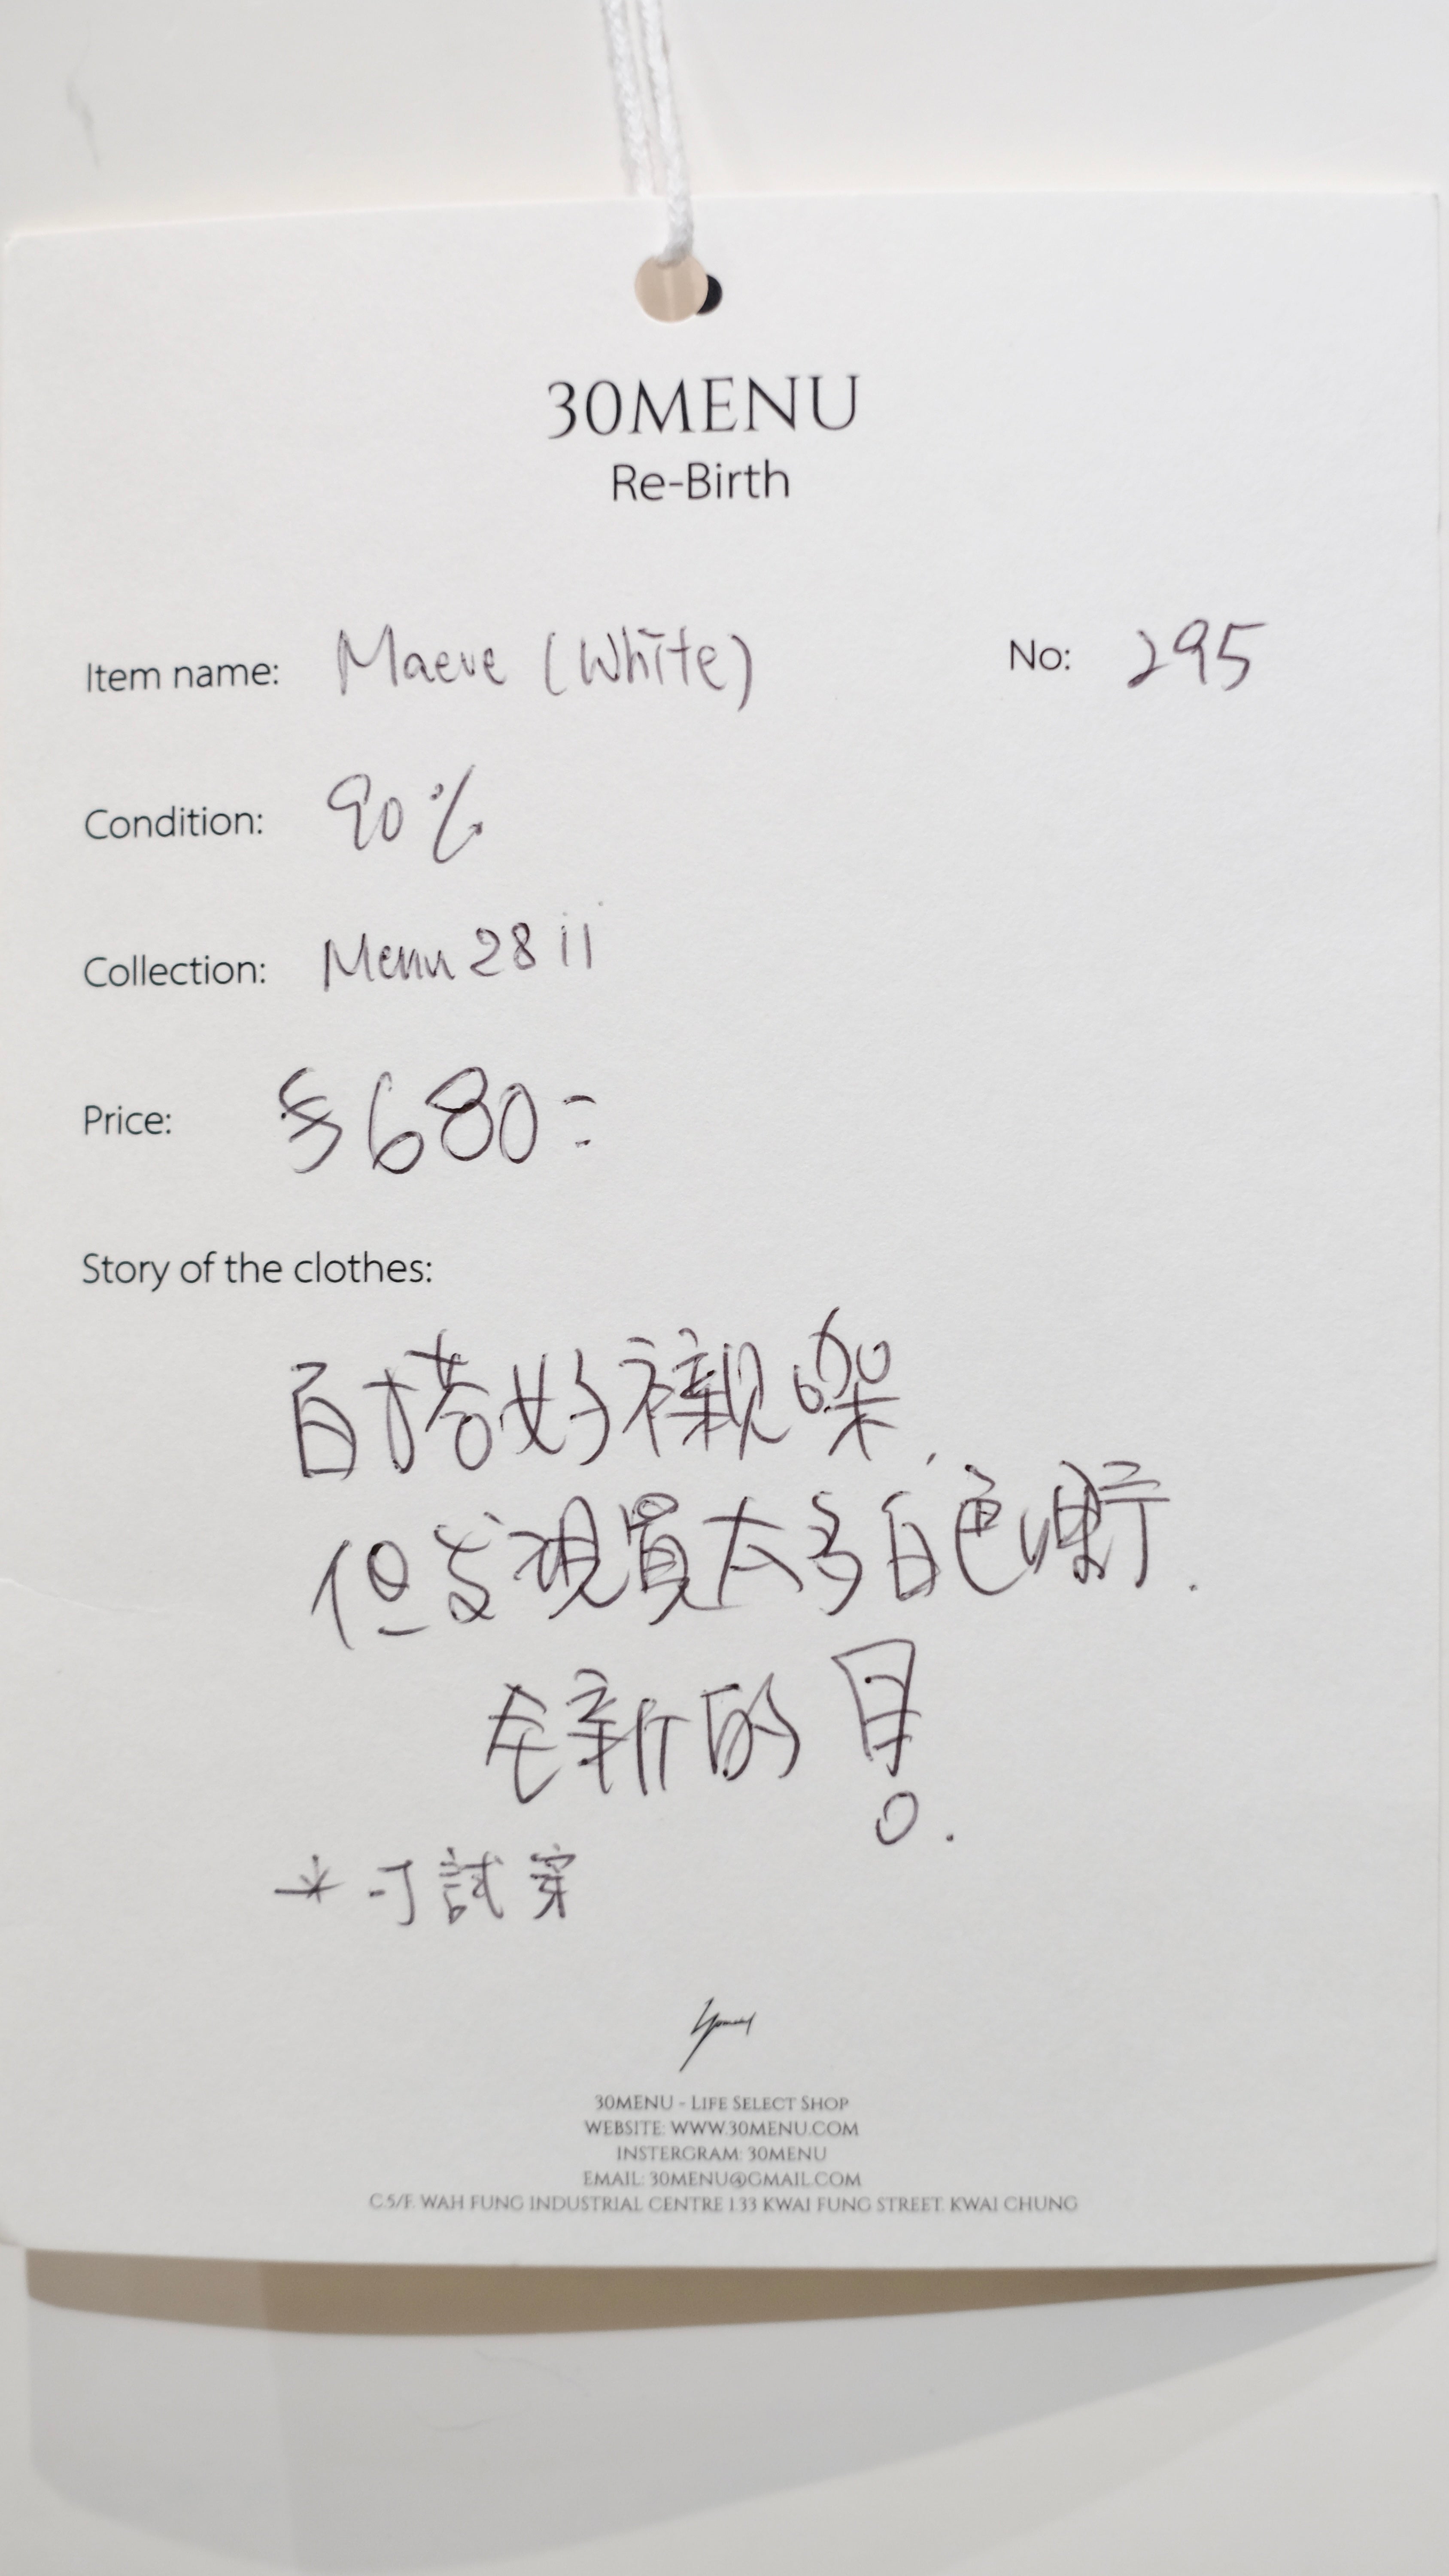 30MENU
Re-Birth
Item name: Maeve (White) No: 295
Condition: 90%
Collection: Menu 28 ii
Price: $680=
Story of the clothes:
百搭好襯㗎,
但发現買太多白色嘢.
全新的
*可試穿
30MENU - LIFE SELECT SHOP
WEBSITE: WWW.30MENU.COM
INSTERGRAM: 30MENU
EMAIL: 30MENU@GMAIL.COM
C.5/F. WAH FUNG INDUSTRIAL CENTRE 1.33 KWAI FUNG STREET. KWAI CHUNG